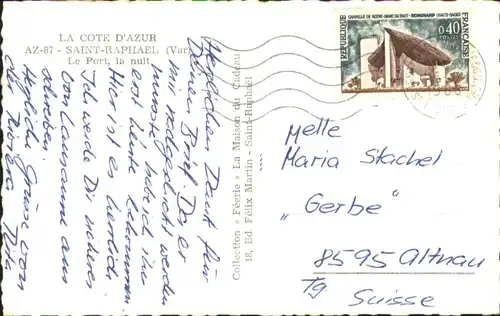 LA COTE D'AZUR
AZ-87 - SAINT-RAPHAEL (Var)
Le Port, la nuit
Herzlichen Dank für
Deinen Brief. Da er
mir nachgeschickt werden
musste, bekam ich ihn
erst heute
Hier ist es herrlich.
Ich werde Dir
von Lausanne aus
schreiben.
Herzliche Grüsse von
Collection « Féerie » La Maison du Cadeau
18, Ed. Félix Martin - Saint-Raphaël
REPUBLIQUE FRANÇAISE
CHAPELLE DE NOTRE-DAME DU HAUT - RONCHAMP (HAUTE-SAONE)
0,40
Melle
Maria Stachel
„Gerbe"
8595 Altnau
Tg
Suisse